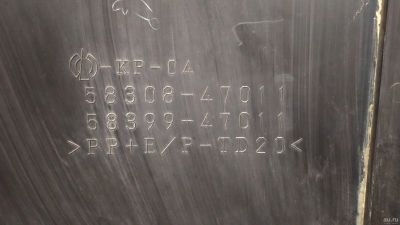 -KP-04
58308-47011
58399-47011
>PP+E/P-TD20<
au.ru